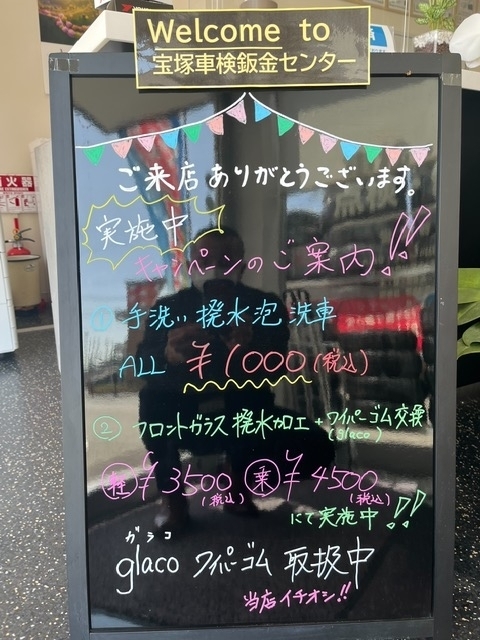 Welcome to
宝塚車検鈑金センター
ご来店ありがとうございます。
実施中
キャンペーンのご案内!!
① 手洗い 撥水泡洗車
ALL ¥1000(税込)
② フロントガラス撥水加工+ワイパーゴム交換
(glaco)
軽 ¥3500(税込) 乗 ¥4500(税込)
にて実施中!!
ガラコ
glaco ワイパーゴム 取扱中
当店イチオシ!!
火器